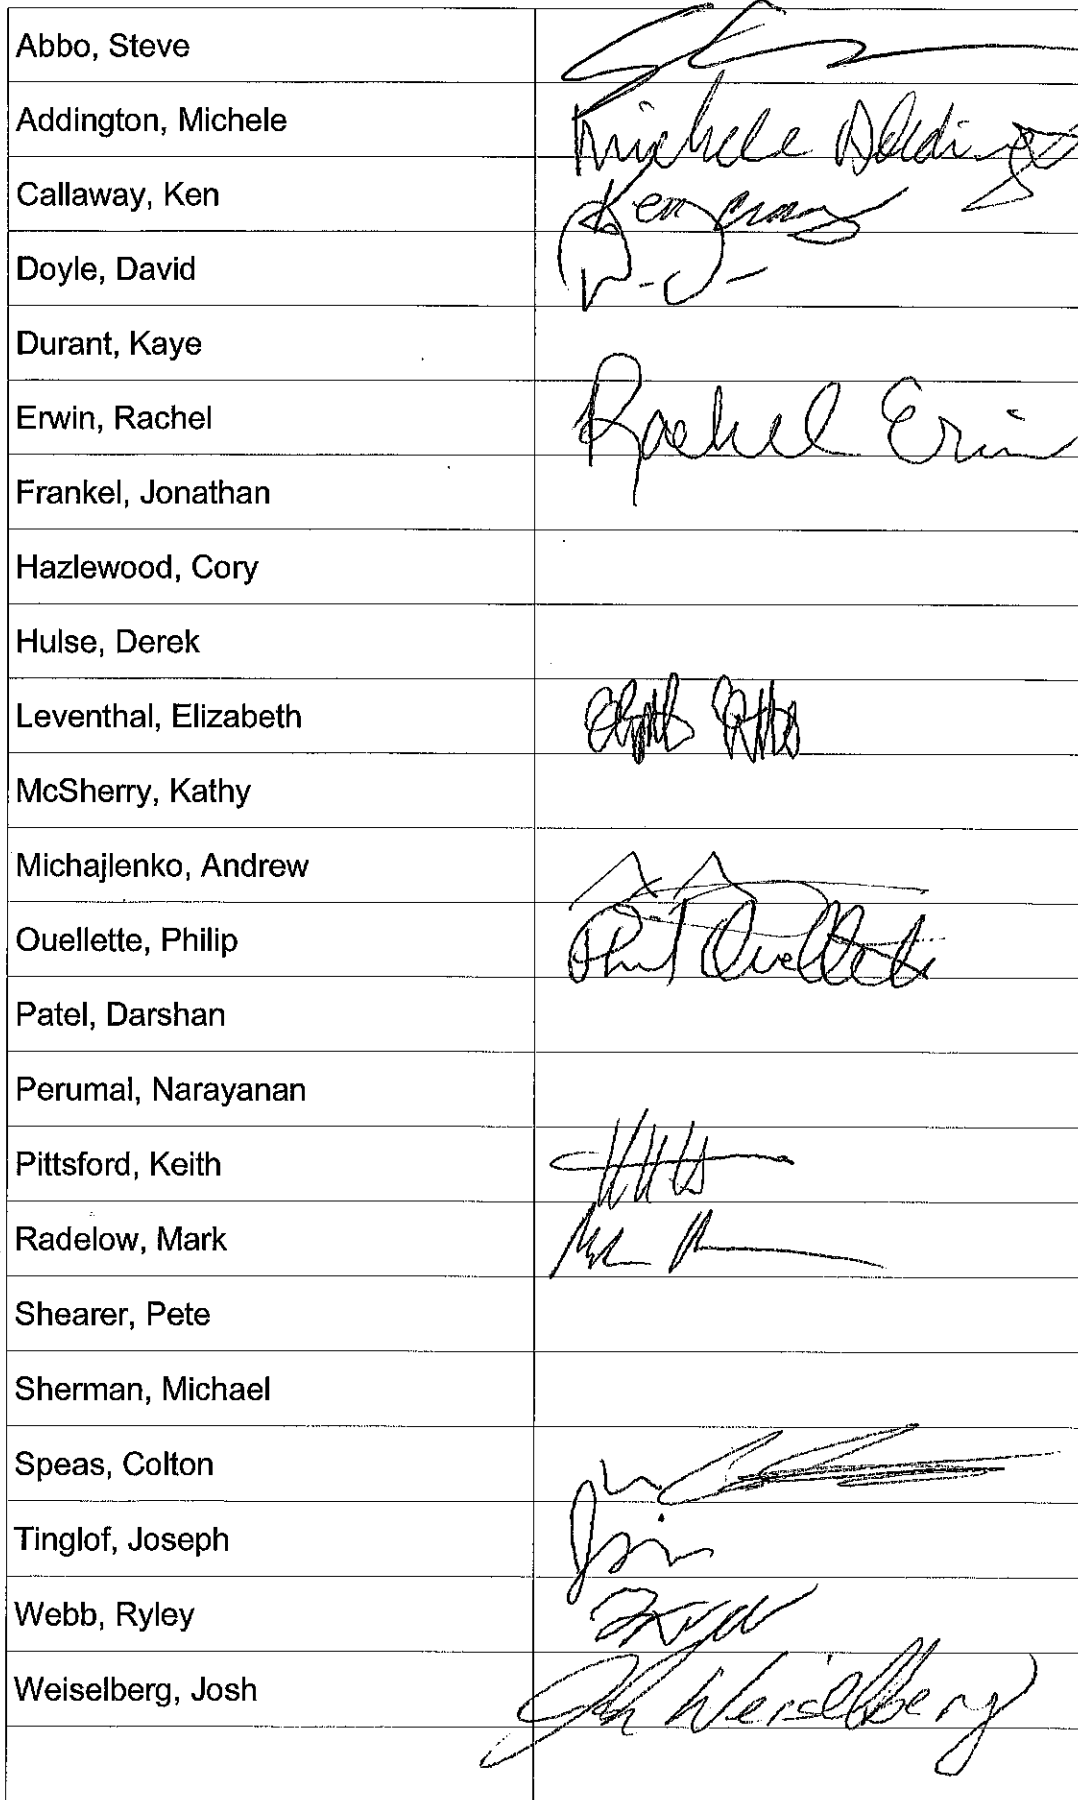 Abbo, Steve
Addington, Michele Michele Adding
Callaway, Ken Ken
Doyle, David
Durant, Kaye
Erwin, Rachel Rachel Erin
Frankel, Jonathan
Hazlewood, Cory
Hulse, Derek
Leventhal, Elizabeth
McSherry, Kathy
Michajlenko, Andrew
Ouellette, Philip Phil Ouellette
Patel, Darshan
Perumal, Narayanan
Pittsford, Keith
Radelow, Mark
Shearer, Pete
Sherman, Michael
Speas, Colton
Tinglof, Joseph
Webb, Ryley
Weiselberg, Josh Josh Weiselberg